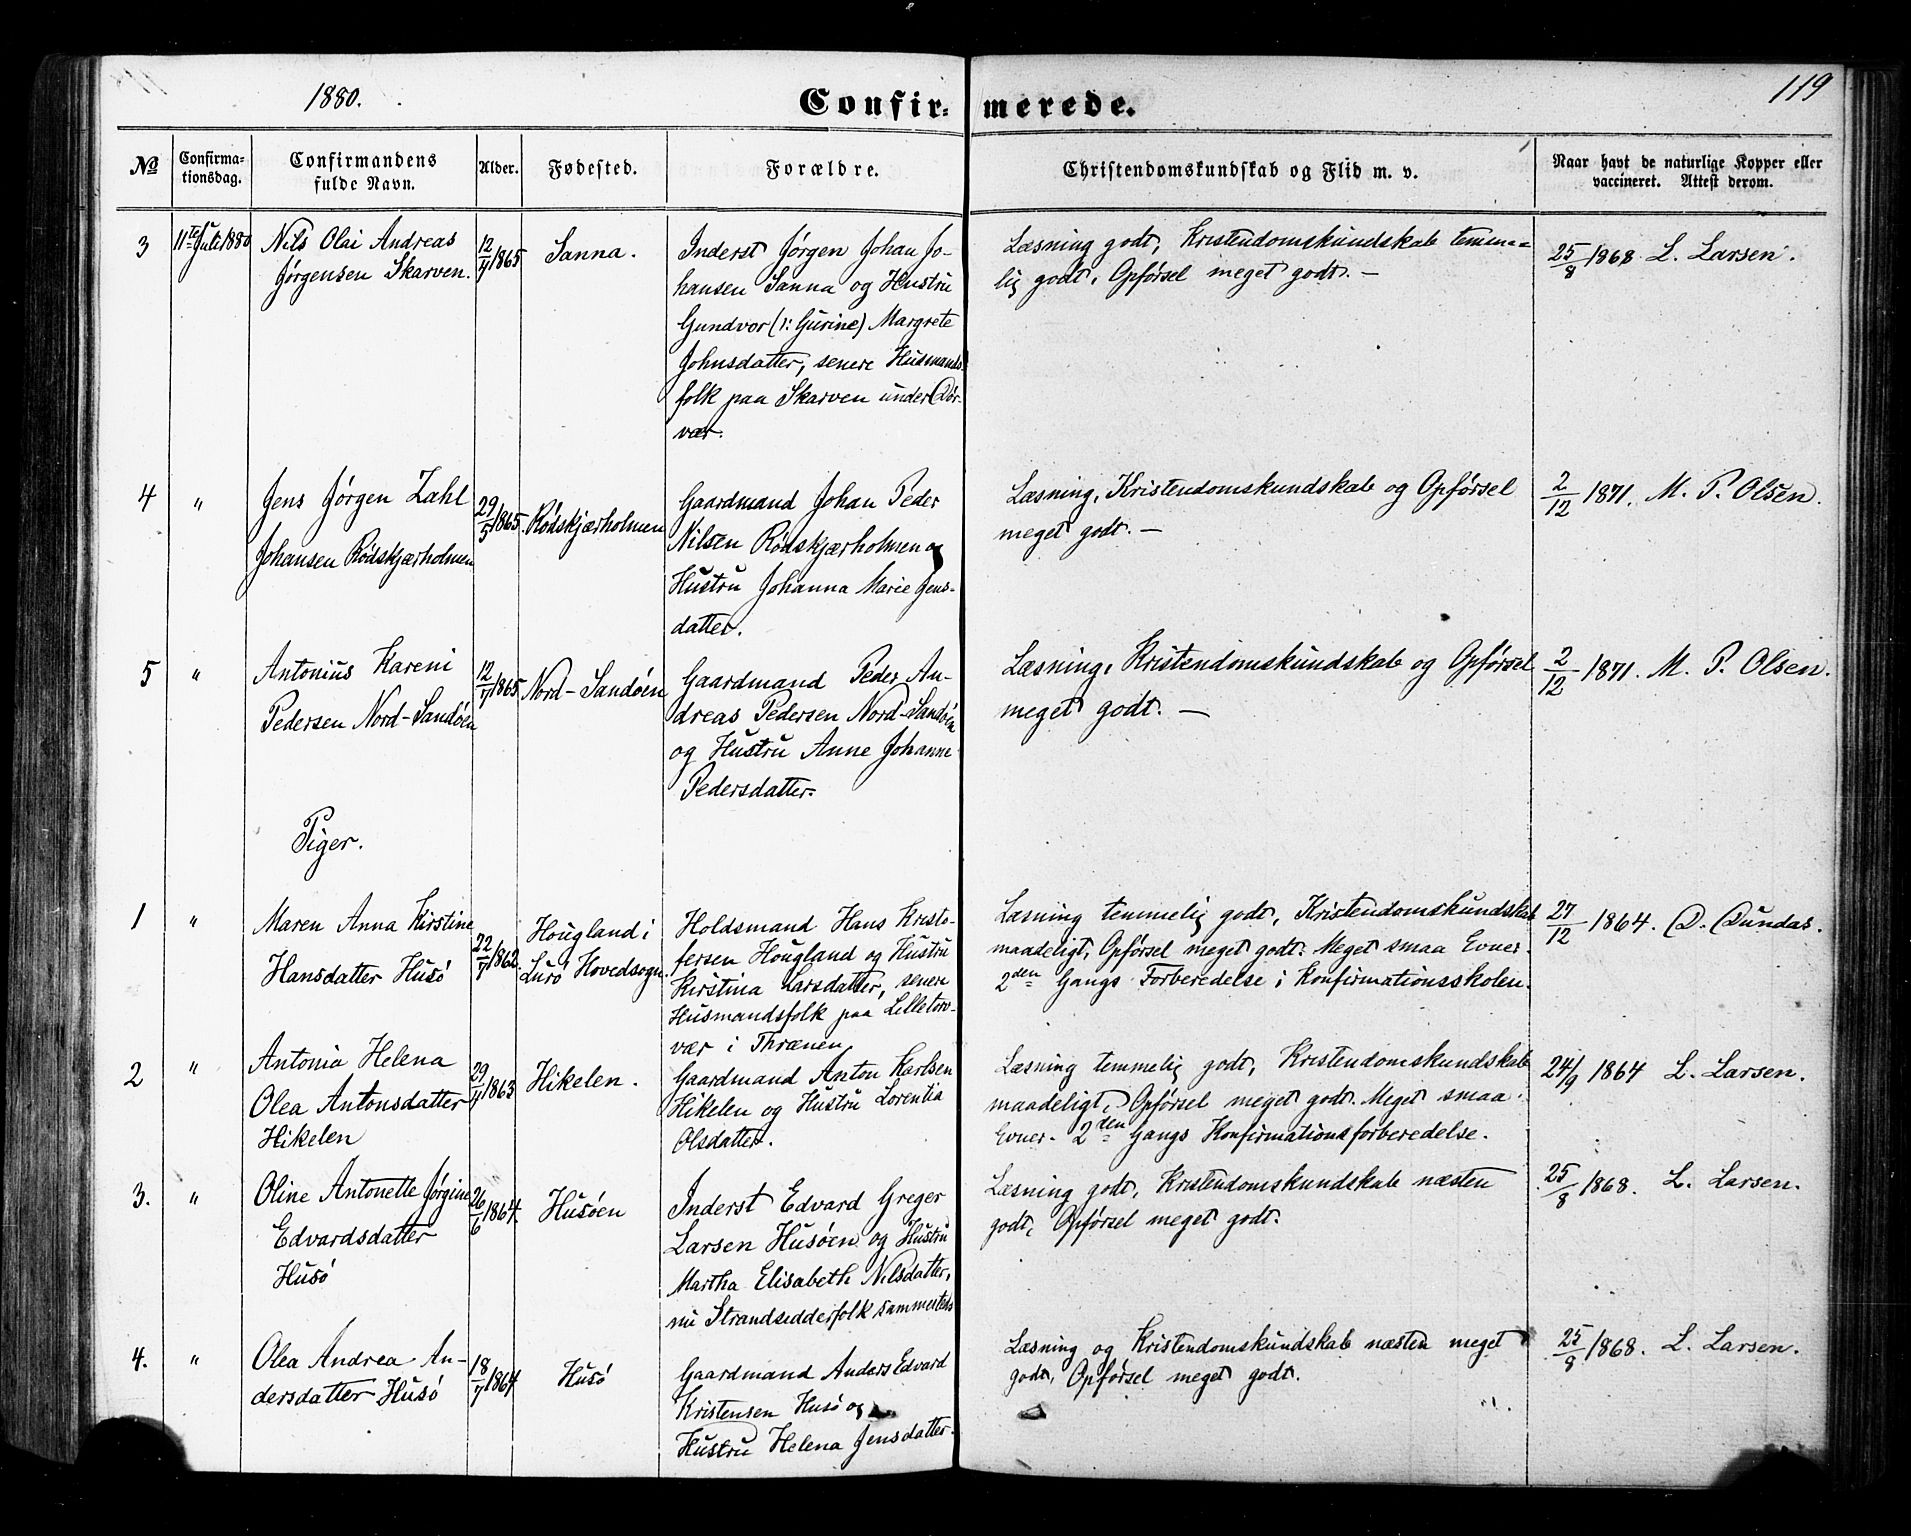 1880. Confir- merede. 119
No Confirma-tionsdag. Confirmandens fulde Navn. Alder. Fødested. Forældre. Christendomskundskab og Flid m. v. Naar havt de naturlige Kopper eller vaccineret. Attest derom.
3 11te Juli 1880 Nils Olai Andreas 12/4 1865 Sanna. Inderst Jørgen Johan Jo- Læsning godt, Kristendomskundskab temme= 25/8 1868 L. Larsen.
Jørgensen Skarven. hansen Sanna og Hustru lig godt, Opførsel meget godt. —
Gundvor (ɔ: Gurine) Margrete
Johnsdatter, senere Husmands-
folk paa Skarven under Dør-
vær.
4 " Jens Jørgen Zahl 29/5 1865 Rødskjærholmen Gaardmand Johan Peder Læsning, Kristendomskundskab og Opførsel 2/12 1871. M. P. Olsen.
Johansen Rødskjærholmen Nilsen Rødskjærholmen og meget godt. —
Hustru Johanna Marie Jens-
datter.
5 " Antonius Kareni 12/7 1865 Nord-Sandøen Gaardmand Peder An- Læsning, Kristendomskundskab og Opførsel 2/12 1871. M. P. Olsen.
Pedersen Nord-Sandøen dreas Pedersen Nord-Sandøen meget godt. —
og Hustru Anne Johanne
Pedersdatter.
Piger.
1 " Maren Anna Kirstine 22/7 1862 Hougland i Holdsmand Hans Kristo- Læsning temmelig godt, Kristendomskundskab 27/12 1864. D. Dundas.
Hansdatter Husø Lurø Hovedsogn. fersen Hougland og Hustru maadeligt, Opførsel meget godt. Meget smaa Evner.
Kirstina Larsdatter, senere 2den Gangs Forberedelse i Konfirmationsskolen.
Husmandsfolk paa Lilletorv-
vær i Thrænen.
2 " Antonia Helena 29/4 1863 Hikelen. Gaardmand Anton Karlsen Læsning temmelig godt, Kristendomskundskab 24/9 1864 L. Larsen.
Olea Antonsdatter Hikelen og Hustru Lorentia maadeligt, Opførsel meget godt. Meget smaa
Hikelen Olsdatter. Evner. 2den Gangs Konfirmationsforberedelse.
3. " Oline Antonette Jørgine 26/6 1864. Husøen Inderst Edvard Greger Læsning godt, Kristendomskundskab næsten 25/8 1868. L. Larsen.
Edvardsdatter Larsen Husøen og Hustru godt, Opførsel meget godt.
Husø Martha Elisabeth Nilsdatter,
nu Strandsidderfolk sammesteds
4. " Olea Andrea An- 18/7 1864 Husø Gaardmand Anders Edvard Læsning og Kristendomskundskab næsten meget 25/8 1868. L. Larsen.
dersdatter Husø Kristensen Husø og godt, Opførsel meget godt.
Hustru Helena Jensdatter.